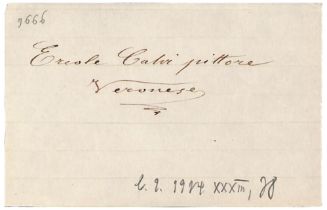 9666
Ercole Calvi pittore
Veronese
b. 2. 1984 XXXIII, 78